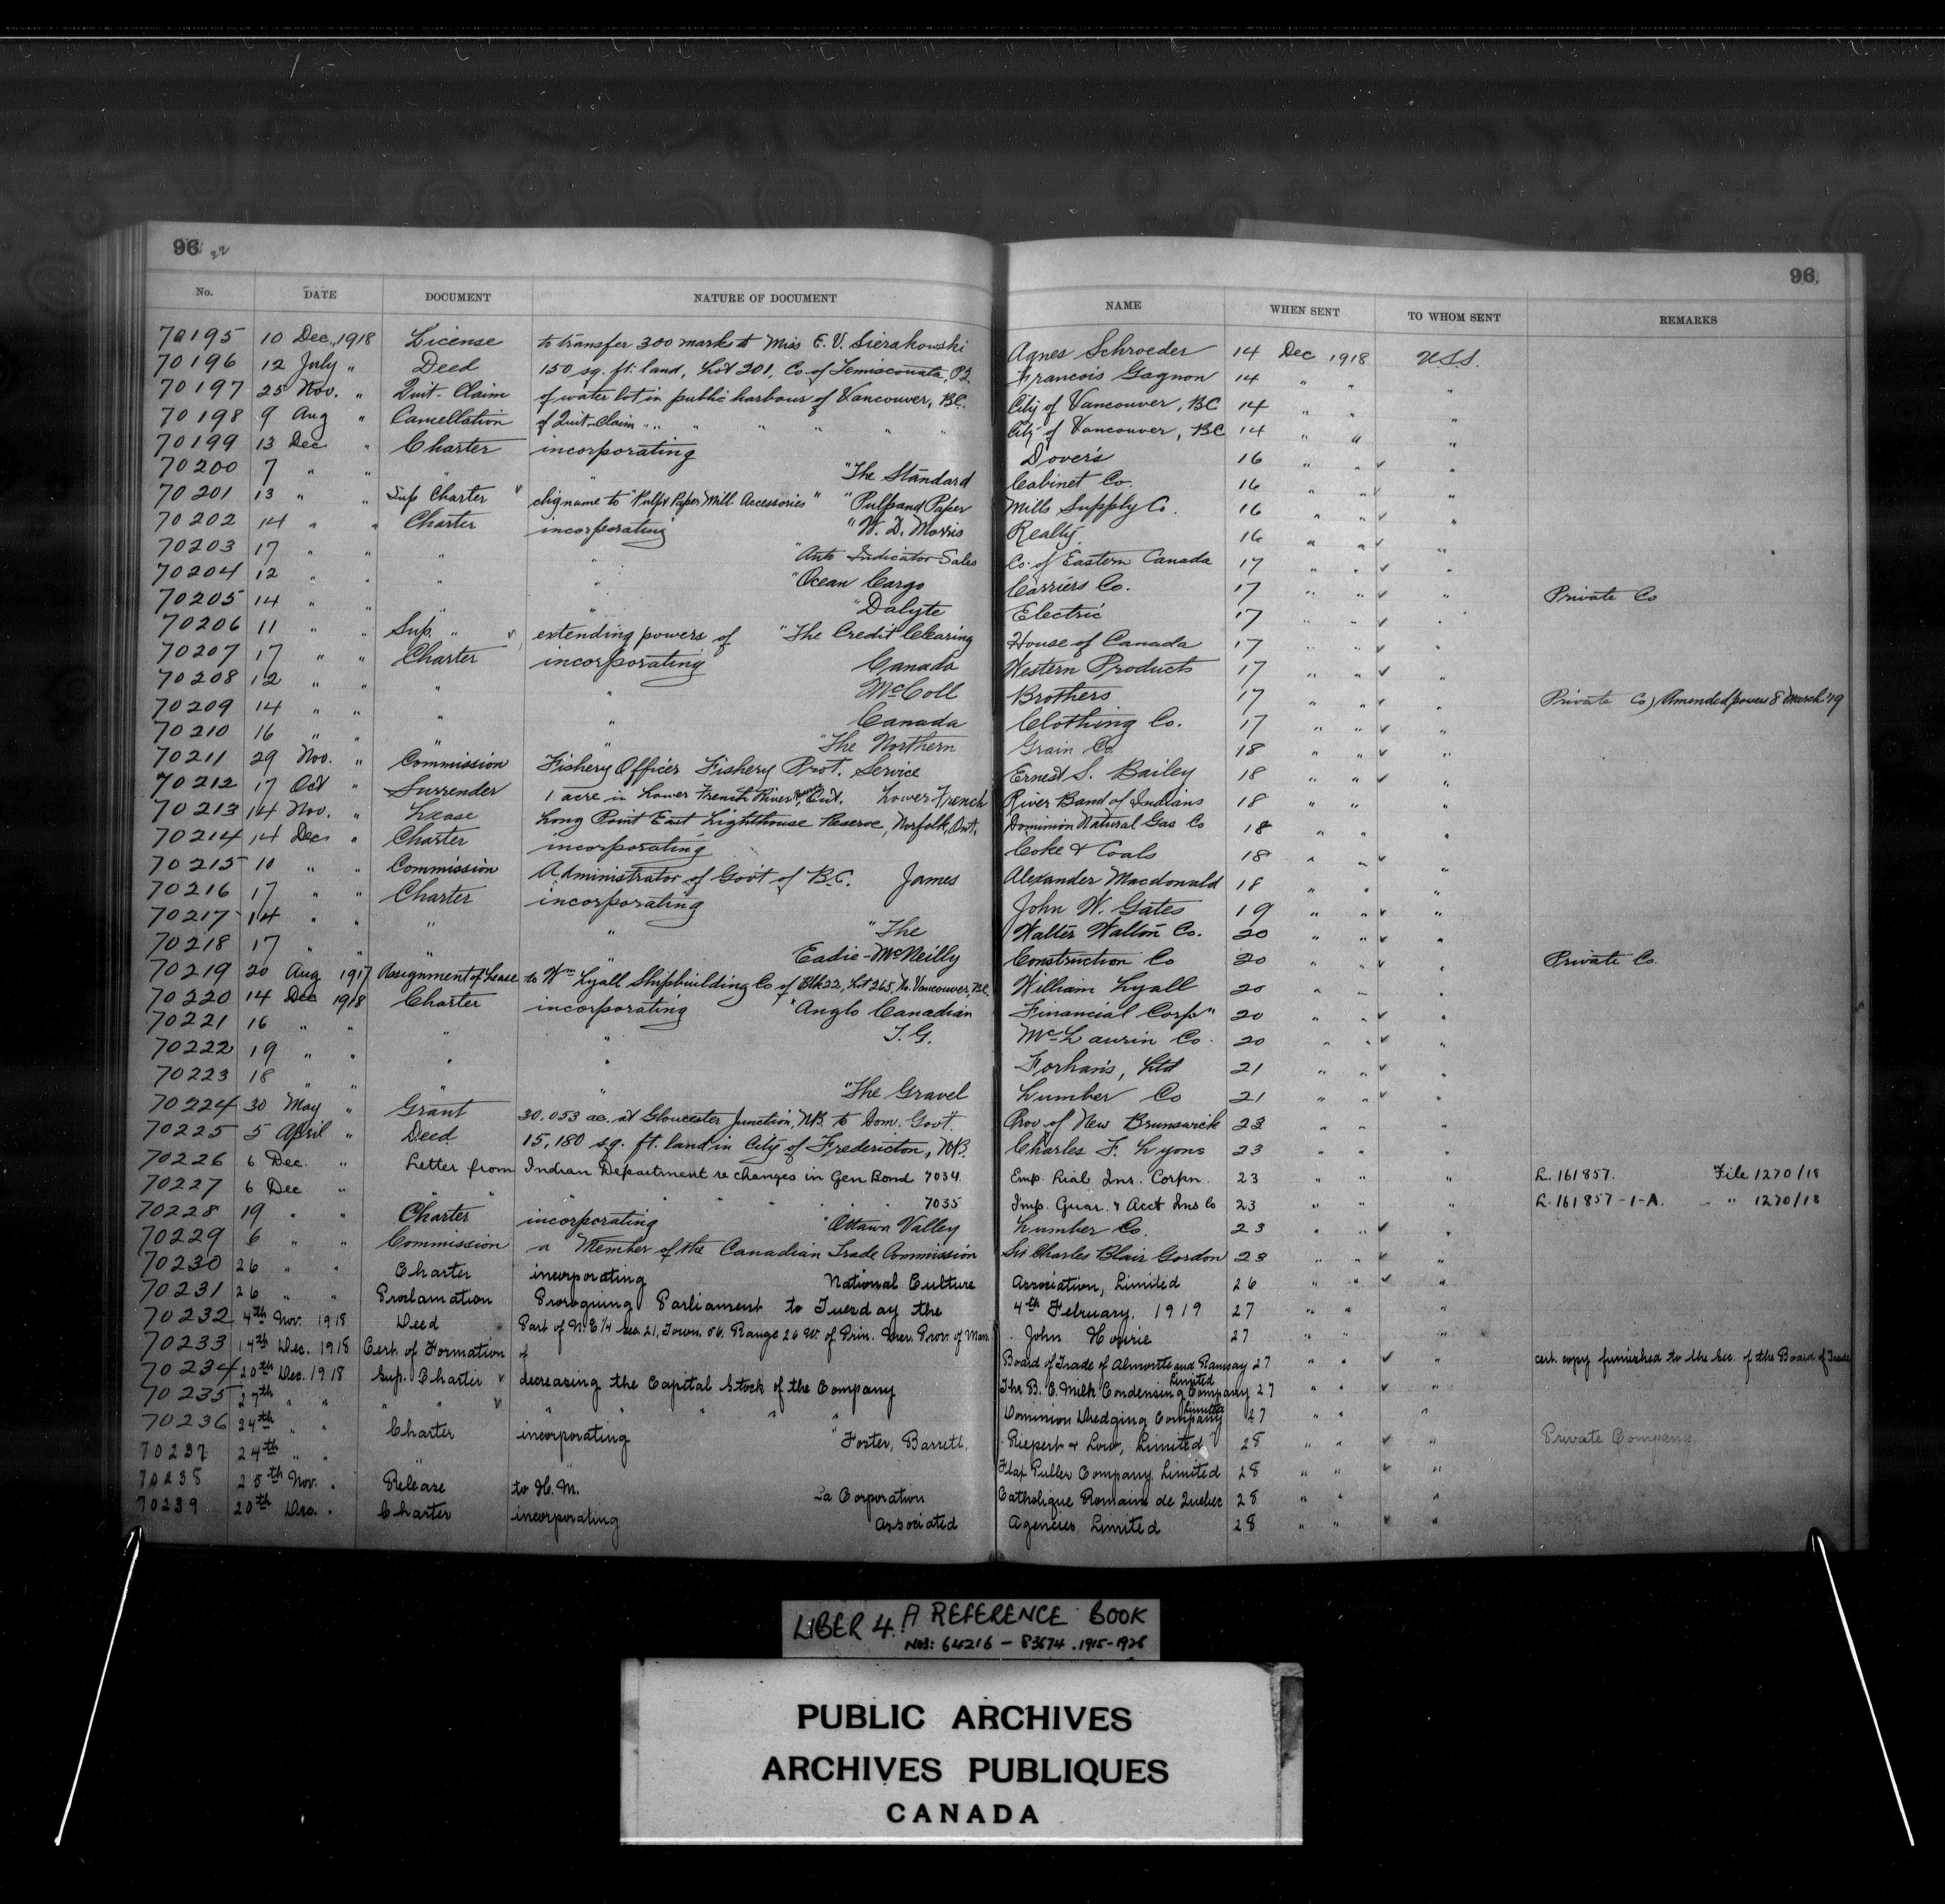 96 22 96
No. DATE DOCUMENT NATURE OF DOCUMENT NAME WHEN SENT TO WHOM SENT REMARKS
70195 10 Dec., 1918 License to transfer 300 marks to Miss E. V. Sierakowski Agnes Schroeder 14 Dec 1918 U.S.S.
70196 12 July " Deed 150 sq. ft. land, Lot 201, Co. of Temisconata, P.Q. Francois Gagnon 14 " " "
70197 25 Nov. " Quit-Claim of water lot in public harbour of Vancouver, B.C. City of Vancouver, BC 14 " " "
70198 9 Aug " Cancellation of Quit-Claim " " " " " " " City of Vancouver, BC 14 " " "
70199 13 Dec " Charter incorporating Dover's 16 " " ✓ "
70200 7 " " " " "The Standard Cabinet Co. 16 " " ✓ "
70201 13 " " Sup Charter ✓ chg name to "Pulp & Paper Mill Accessories" "Pulp and Paper Mills Supply Co. 16 " " ✓ "
70202 14 " " Charter incorporating "W. D. Morris Realty. 16 " " ✓ "
70203 17 " " " " "Auto Indicator Sales Co. of Eastern Canada 17 " " ✓ "
70204 12 " " " " "Ocean Cargo Carriers Co. 17 " " ✓ " Private Co
70205 14 " " " " "Dalyte Electric 17 " " ✓ "
70206 11 " " Sup. " ✓ extending powers of "The Credit Clearing House of Canada 17 " " ✓ "
70207 17 " " Charter incorporating Canada Western Products 17 " " ✓ "
70208 12 " " " " McColl Brothers 17 " " ✓ " Private Co) Amended powers 8 March '19
70209 14 " " " " Canada Clothing Co. 17 " " ✓ "
70210 16 " " " " "The Northern Grain Co. 18 " " ✓ "
70211 29 Nov. " Commission Fishery Officer Fishery Prot. Service Ernest S. Bailey 18 " " ✓ "
70212 17 Oct " Surrender 1 acre in Lower French River Ont. Lower French River Band of Indians 18 " " "
70213 14 Nov. " Lease Long Point East Lighthouse Reserve, Norfolk, Ont. Dominion Natural Gas Co 18 " " "
70214 14 Dec " Charter incorporating Coke & Coals 18 " " ✓ "
70215 10 " " Commission Administrator of Gov't of B.C. James Alexander Macdonald 18 " " "
70216 17 " " Charter incorporating John W. Gates 19 " " ✓ "
70217 14 " " " " "The Walter Walton Co. 20 " " ✓ "
70218 17 " " " " Eadie-McNeilly Construction Co 20 " " ✓ " Private Co.
70219 20 Aug 1917 Assignment of Lease to Wm Lyall Shipbuilding Co of Blk 22, Lot 265, No. Vancouver, B.C. William Lyall 20 " " "
70220 14 Dec 1918 Charter incorporating "Anglo Canadian Financial Corp" 20 " " ✓ "
70221 16 " " " " T. G. McLaurin Co. 20 " " ✓ "
70222 19 " " " " Forhan's, Ltd 21 " " ✓ "
70223 18 " " " " "The Gravel Lumber Co 21 " " ✓ "
70224 30 May " Grant 30.053 ac. at Gloucester Junction, NB. to Dom. Govt. Prov. of New Brunswick 23 " " "
70225 5 April " Deed 15,180 sq. ft. land in City of Fredericton, N.B. Charles F. Lyons 23 " " "
70226 6 Dec. " Letter from Indian Department re changes in Gen Bond 7034 Emp. Liab Ins. Corpn. 23 " " " L. 161857. File 1270/18
70227 6 Dec " " " " " " " 7035 Imp. Guar. & Acct Ins Co 23 " " " L. 161857-1-A. " 1270/18
70228 19 " " Charter incorporating "Ottawa Valley Lumber Co. 23 " " ✓ "
70229 6 " " Commission a Member of the Canadian Trade Commission Sir Charles Blair Gordon 23 " " ✓ "
70230 26 " " Charter incorporating National Culture Association, Limited 26 " " ✓ "
70231 26 " " Proclamation Proroguing Parliament to Tuesday the 4th February, 1919 27 " " "
70232 4th Nov. 1918 Deed Part of N.E 1/4 sec. 21, Town. 56. Range 26 W. of Prin. Mer. Prov. of Man. John Hourie 27 " " "
70233 14th Dec. 1918 Cert. of Formation of Board of Trade of Almonte and Ramsay 27 " " ✓ " cert. copy furnished to the Sec. of the Board of Trade
70234 20th Dec. 1918 Sup. Charter ✓ decreasing the Capital Stock of the Company The B. C. Milk Condensing Company Limited 27 " " ✓ "
70235 27th " " " " ✓ " " " " " Dominion Dredging Company Limited 27 " " "
70236 24th " " Charter incorporating "Foster, Barrett, Riepert & Low, Limited" 28 " " ✓ " Private Company.
70237 24th " " " " Flap Puller Company, Limited 28 " " ✓ "
70238 25th Nov. " Release to H. M. La Corporation Catholique Romaine de Quebec 28 " " "
70239 20th Dec. " Charter incorporating Associated Agencies, Limited 28 " " ✓ "
LIBER 4. A REFERENCE BOOK
NOS: 64216 - 83674. 1915-1926
PUBLIC ARCHIVES
ARCHIVES PUBLIQUES
CANADA